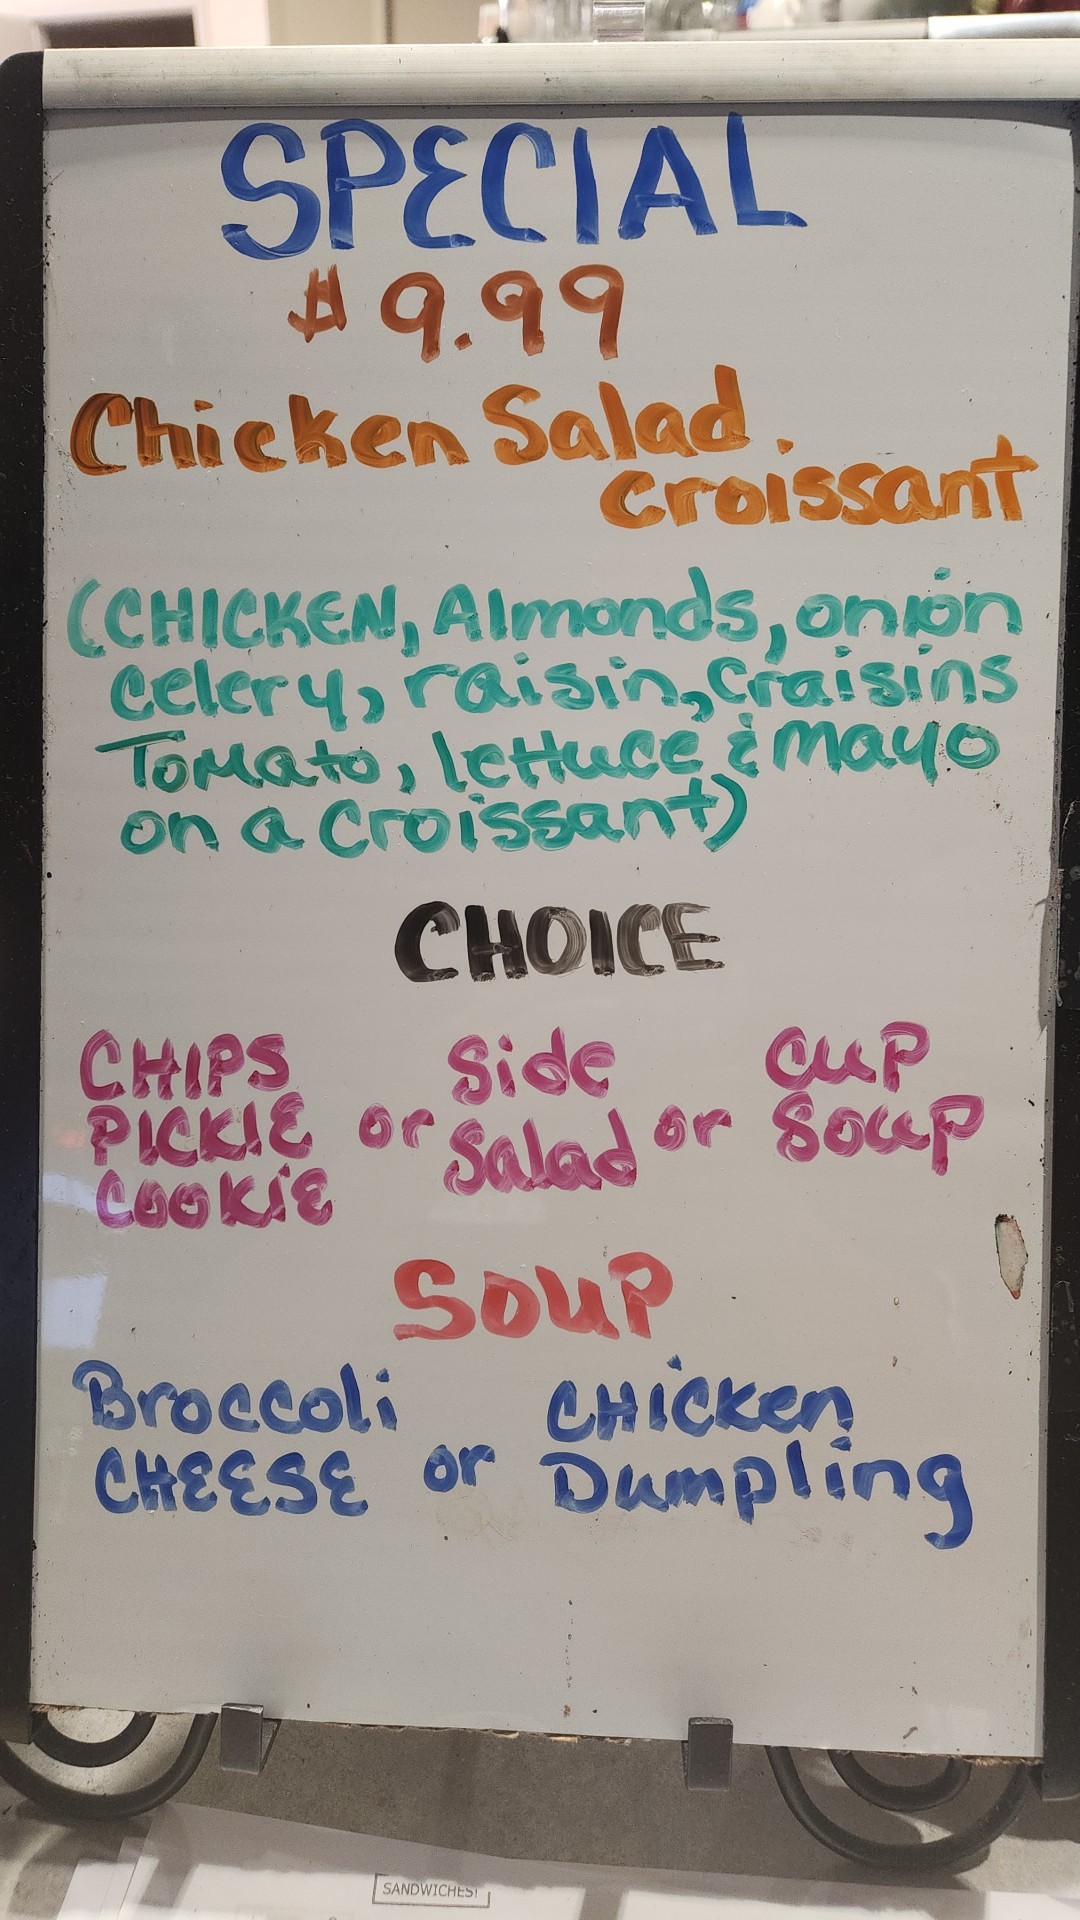 SPECIAL
$9.99
Chicken Salad
Croissant
(CHICKEN, Almonds, onion
Celery, raisin, Craisins
Tomato, lettuce & Mayo
on a Croissant)
CHOICE
CHIPS Side CUP
PICKLE or Salad or Soup
COOKIE
SOUP
Broccoli CHicken
CHEESE or Dumpling
SANDWICHES!